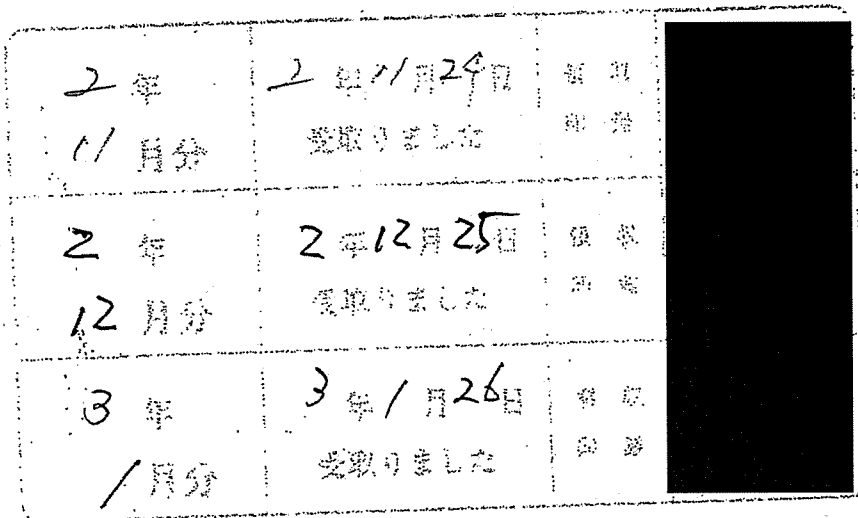 2年
11月分
2年11月24日
受取りました
2年
12月分
2年12月25日
受取りました
3年
1月分
3年1月26日
受取りました